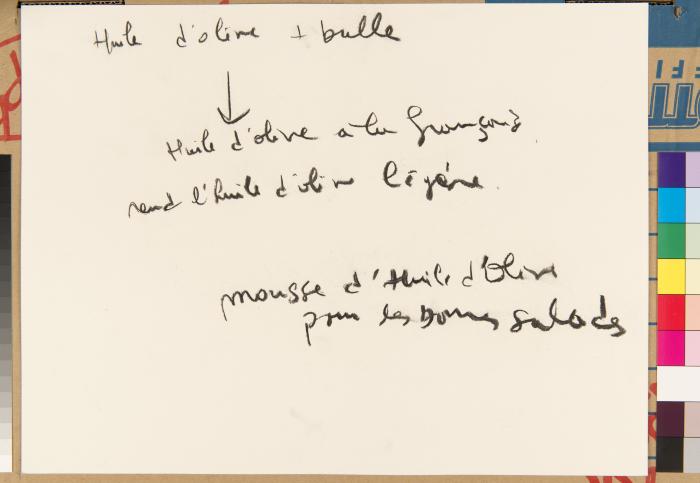 Huile d'olive + bulle
Huile d'olive à la française
rend l'huile d'olive légère.
mousse d'Huile d'Olive
pour les bonnes salades